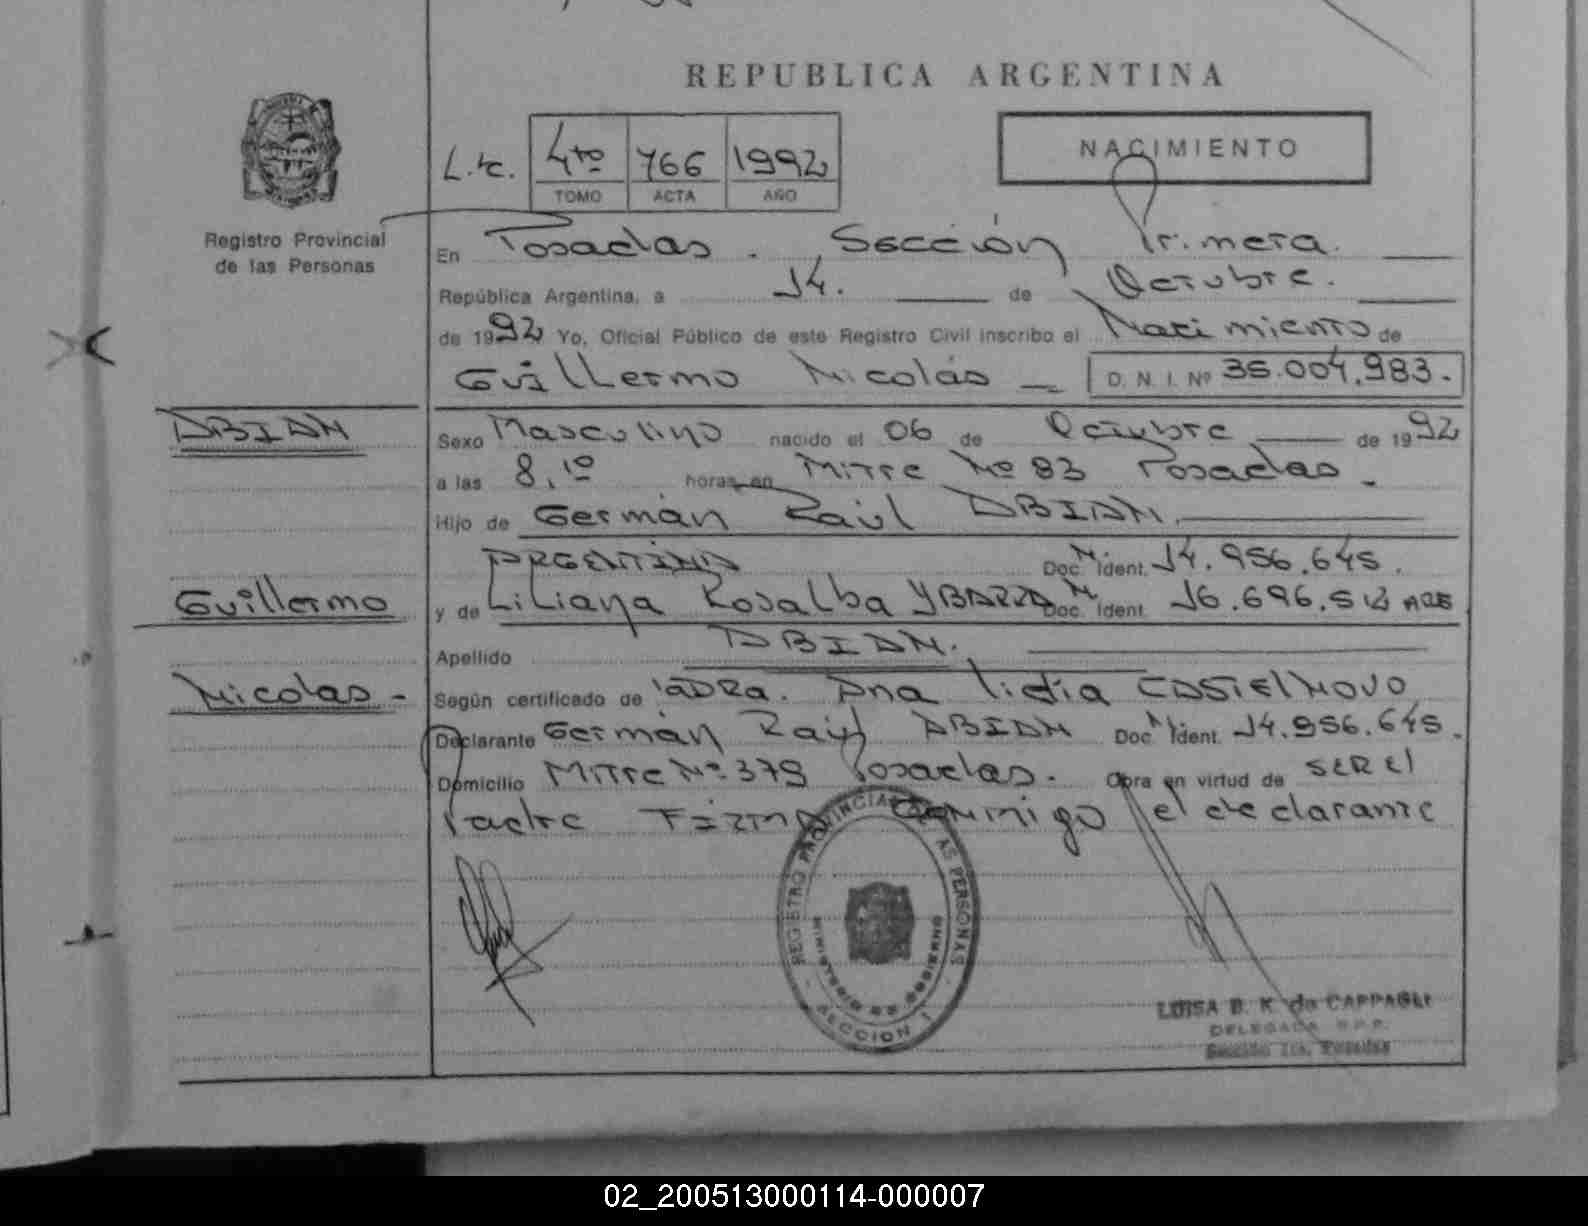 REPUBLICA ARGENTINA
NACIMIENTO
4to 766 1992
TOMO ACTA AÑO
Registro Provincial
de las Personas
En Posadas. Sección Primera.
República Argentina, a 14. de Octubre.
de 1992 Yo, Oficial Público de este Registro Civil inscribo el Nacimiento de
Guillermo Nicolás D. N. I. Nº 36.004.983.
ABIAN
Sexo Masculino nacido el 06 de Octubre de 1992
a las 8,10 horas en Mitre Nº 83 Posadas
Hijo de Germán Raúl ABIAN.
ARGENTINO Doc. N Ident. 14.956.645.
Guillermo
y de Liliana Rosalba YBARRA Doc. N Ident. 16.696.512 ARG
Apellido ABIAN.
Nicolas -
Según certificado de laDRa. Ana lidia CASTELNOVO
Declarante Germán Raúl ABIAN Doc. N Ident. 14.956.645.
Domicilio Mitre Nº 379 Posadas. Obra en virtud de SER El
Padre FIRMA conmigo el declarante
REGISTRO PROVINCIAL DE LAS PERSONAS
MINISTERIO DE GOBIERNO
SECCION 1
LUISA B. K. de CAPPAGLI
DELEGADA R.P.P.
Sección 1ra. Posadas
02_200513000114-000007